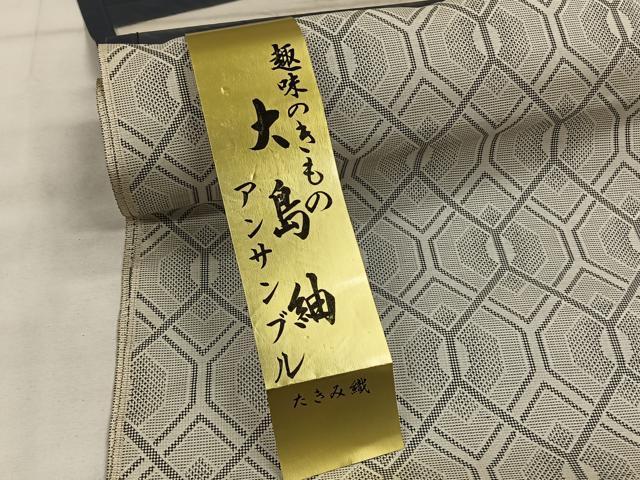 趣味のきもの
大島紬
アンサンブル
たきみ織